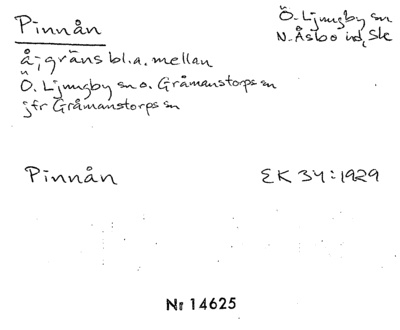 Pinnån
Ö. Ljungby sn
N. Åsbo hd, Sk
å; gräns bl.a. mellan
Ö. Ljungby sn o. Gråmanstorps sn
jfr Gråmanstorps sn
Pinnån EK 34:1929
Nr 14625